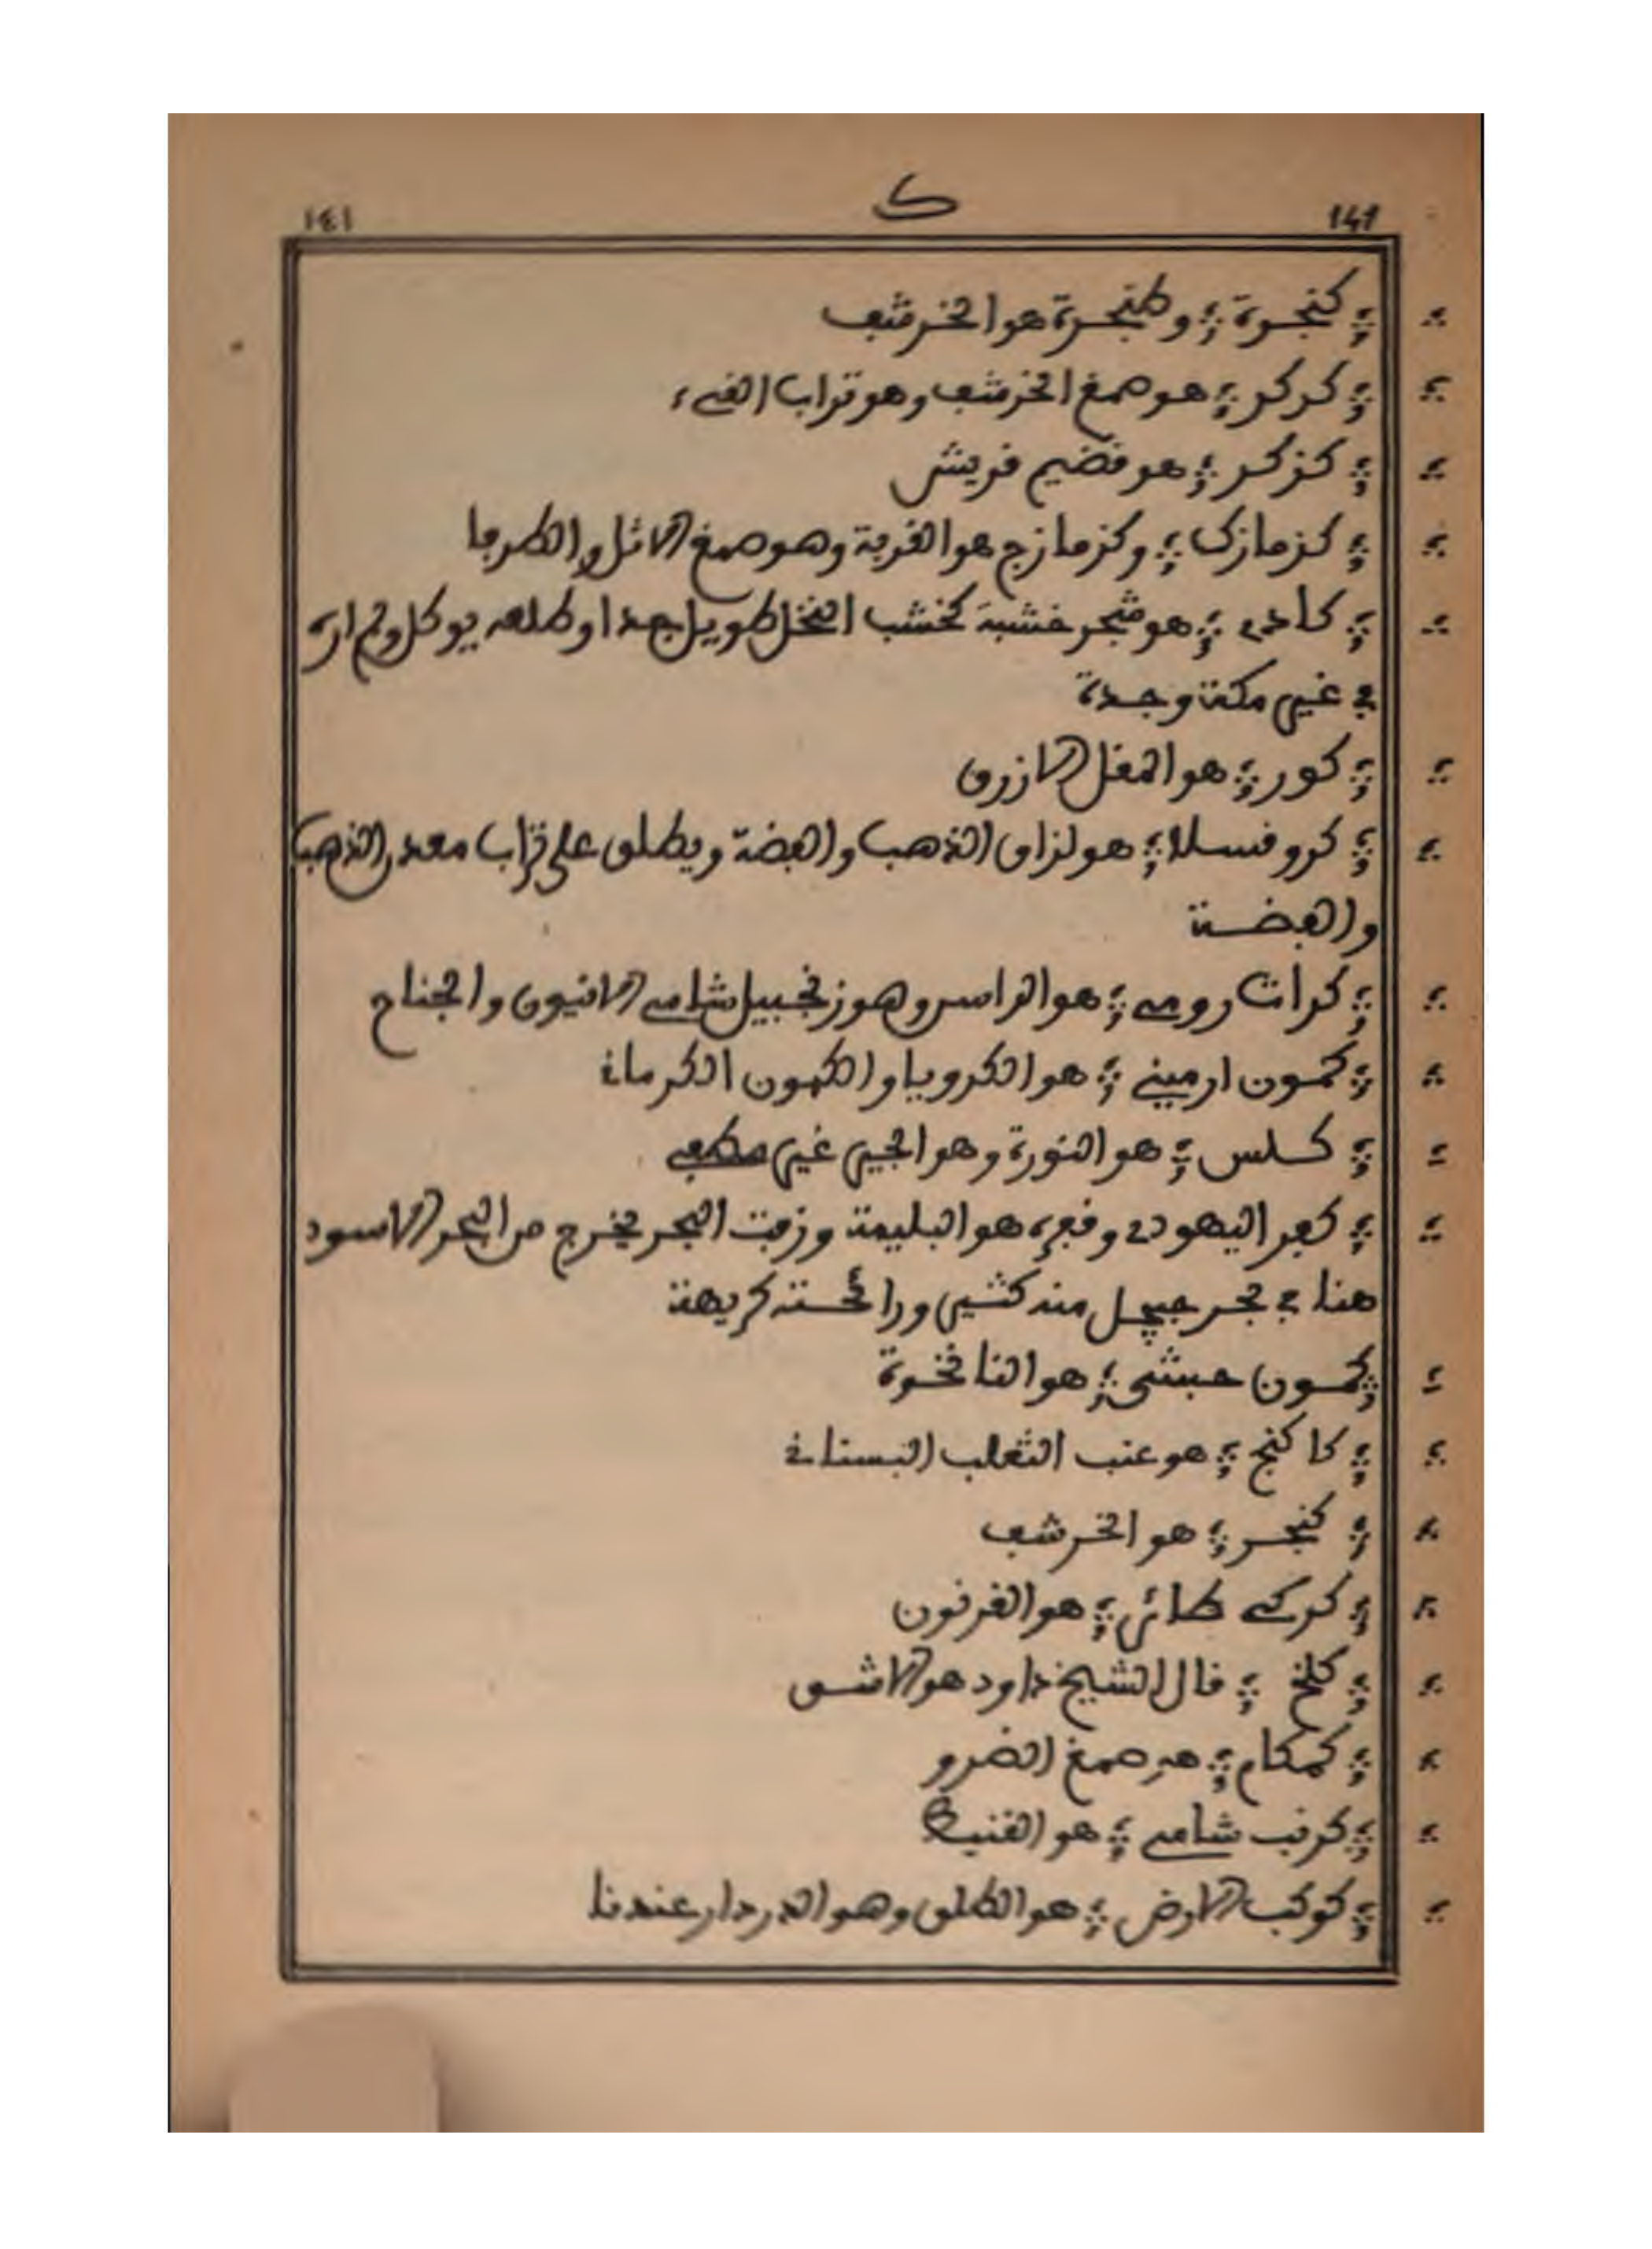 ١٤١ ک 141
؛ كنجرة ؛ وطنجرة هو الخرشف
؛ كركر ؛ هو صمغ الخرشف وهو تراب القيء
؛ كزكر ؛ هو قضيم قريش
؛ كزمازك ؛ وكزمازج هو العذبة وهو صمغ الاثل والطرفا
؛ كادي ؛ هو شجر خشبه كخشب النخل طويل جدا وطلعه يوكل ولم اره
في غير مكة وجدة
؛ كور ؛ هو المقل الازرق
؛ كروقسلا ؛ هو لزاق الذهب والفضة ويطلق على تراب معدن الذهب
والفضة
؛ كراث رومي ؛ هو الراسن وهو زنجبيل شامي الانيون والجناح
؛ كمون ارميني ؛ هو الكرويا والكمون الكرماني
؛ كلس ؛ هو النورة وهو الجير غير مطفي
؛ كفر اليهودي وقفره هو البليمة وزفت البحر يخرج من البحر الاسود
هنا في بحر منه كثير ورائحته كريهة
؛ كمون حبشي ؛ هو النانخوة
؛ كاكنج ؛ هو عنب الثعلب البستاني
؛ كنجر ؛ هو الخرشف
؛ كركي طائر ؛ هو الغرنون
؛ كلخ ؛ قال الشيخ داود هو الاشق
؛ كمكام ؛ هو صمغ الضرو
؛ كرنب شامي ؛ هو القنبيط
؛ كوكب الارض ؛ هو الطلق وهو الدردار عندنا